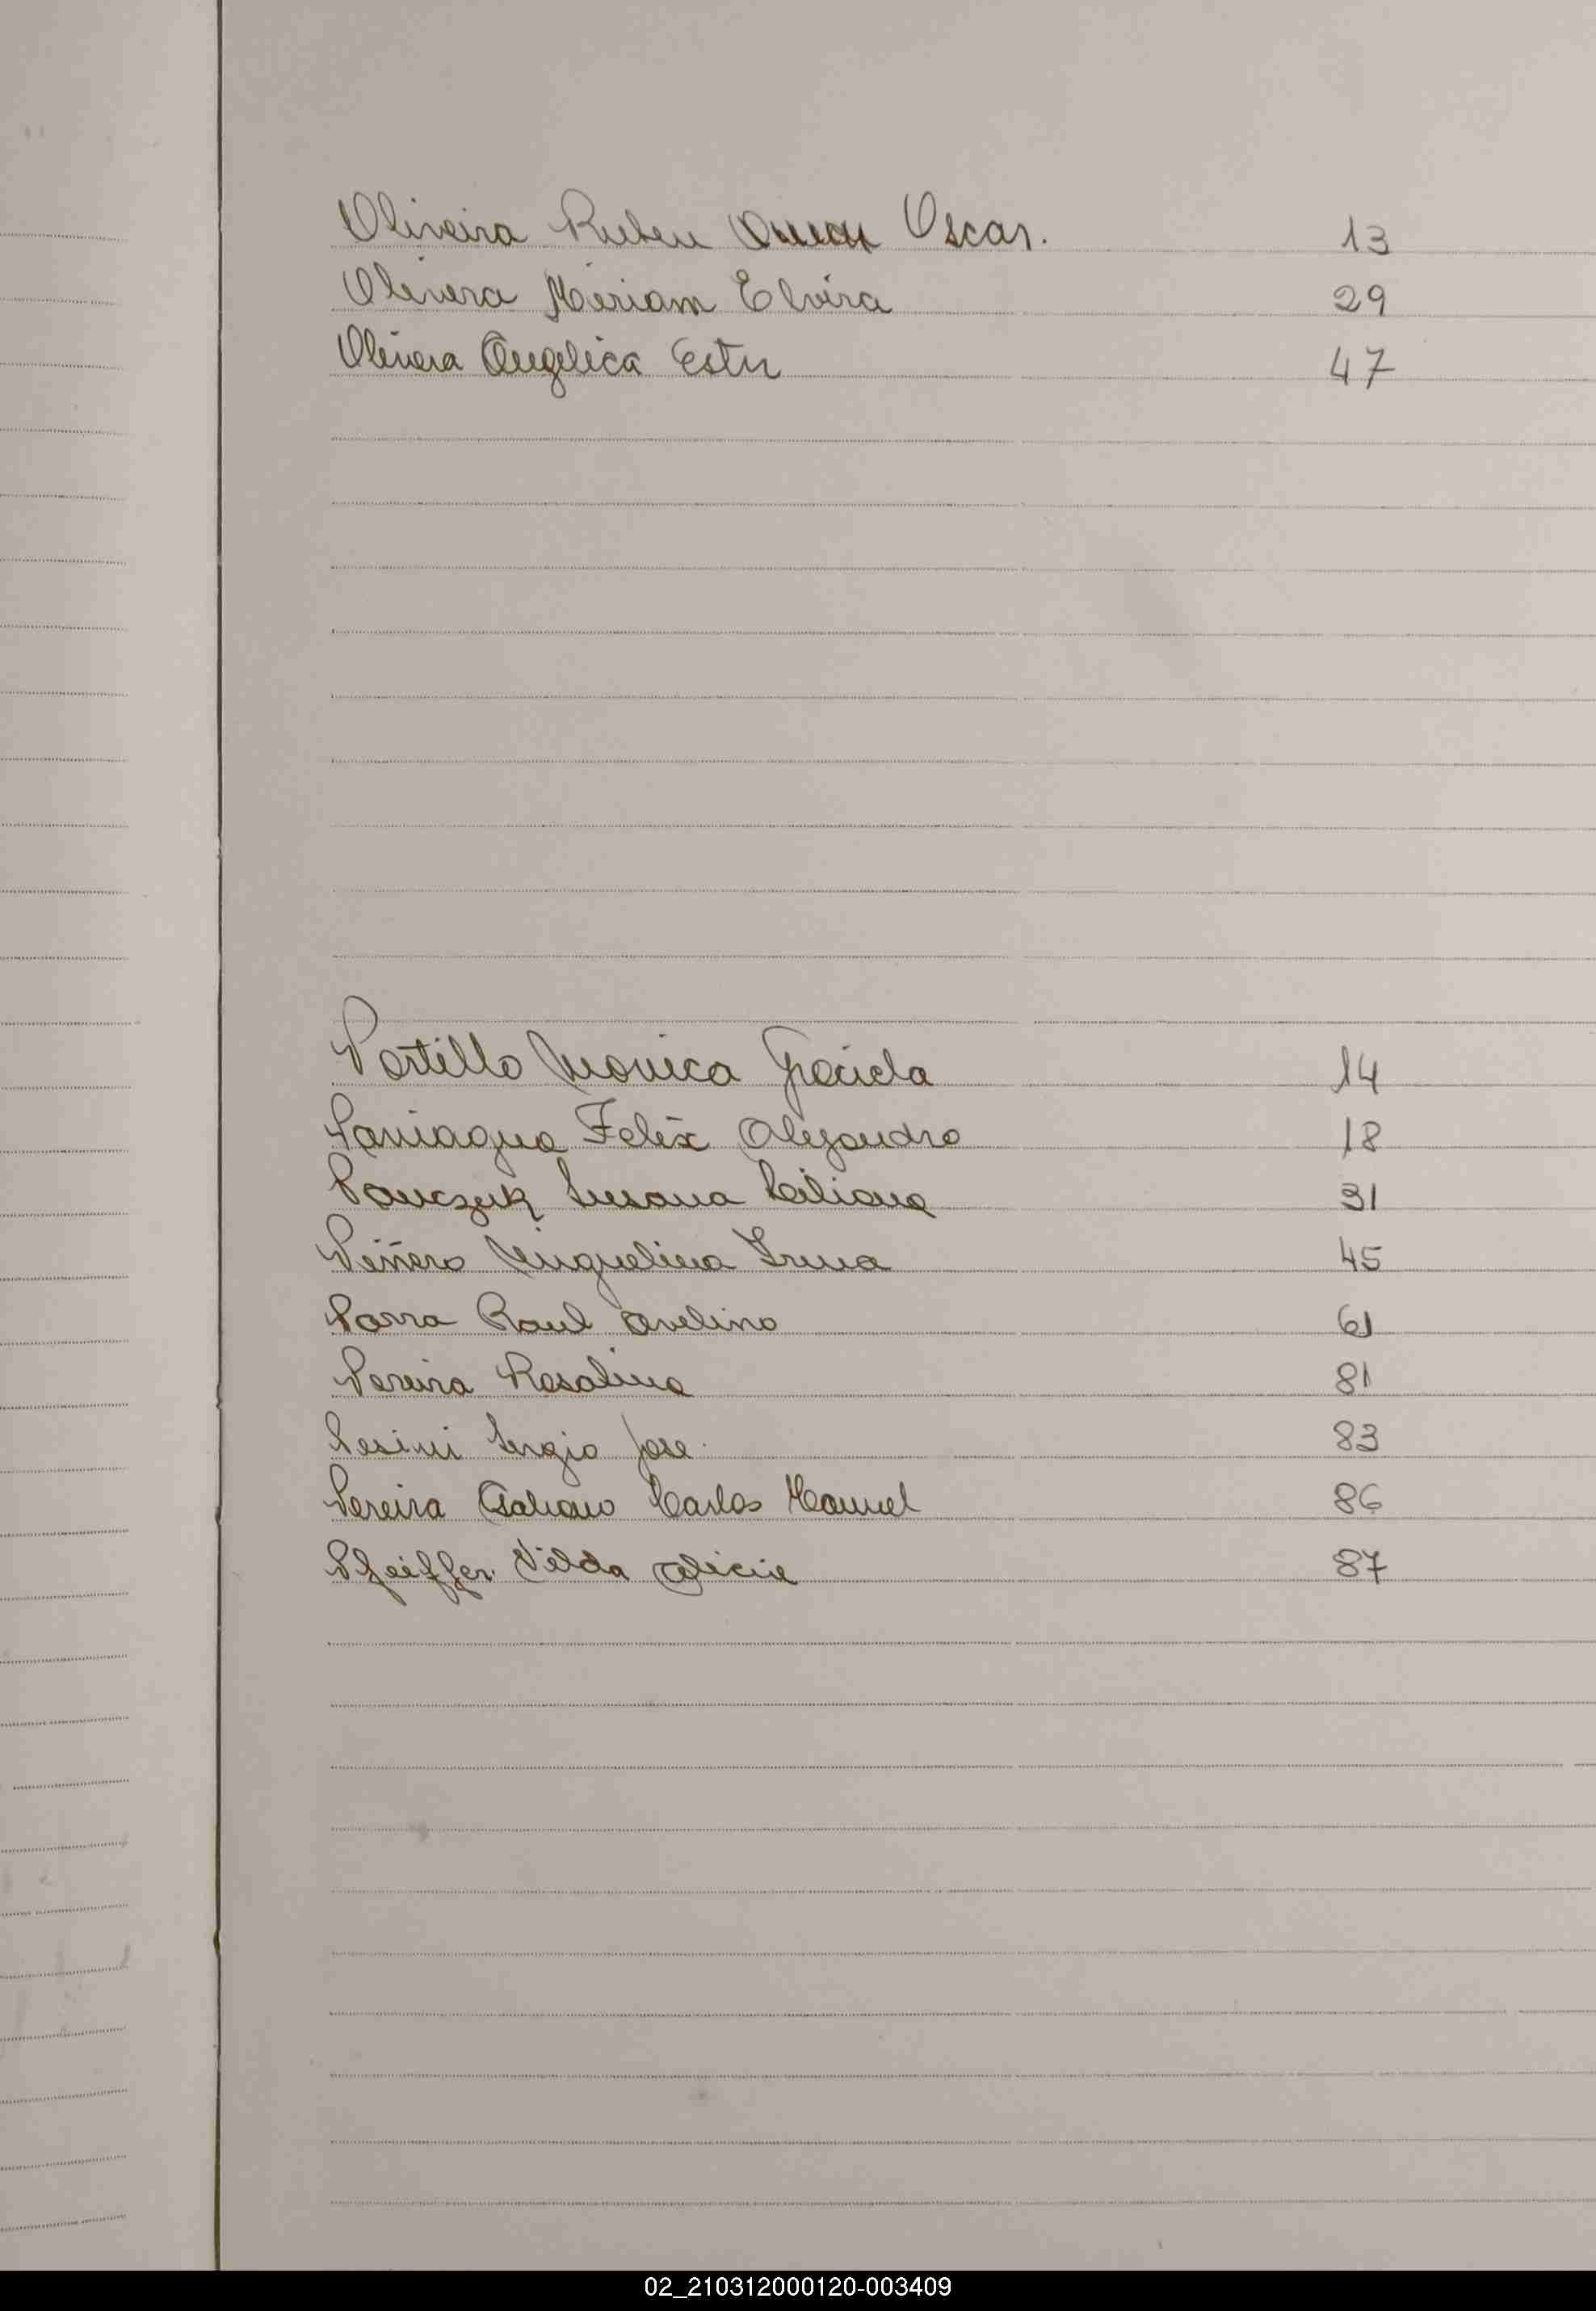 Oliveira Ruben Oscar. 13
Olivera Miriam Elvira 29
Olivera Angelica Ester 47
Portillo Monica Graciela 14
Paniagua Felix Alejandro 18
Panczuk Susana Liliana 31
Piñero Miguelina Irma 45
Parra Raul Avelino 61
Pereira Rosalina 81
Pesini Sergio Jose. 83
Pereira Galiano Carlos Manuel 86
Pfeiffer Nilda Alicia 87
02_210312000120-003409